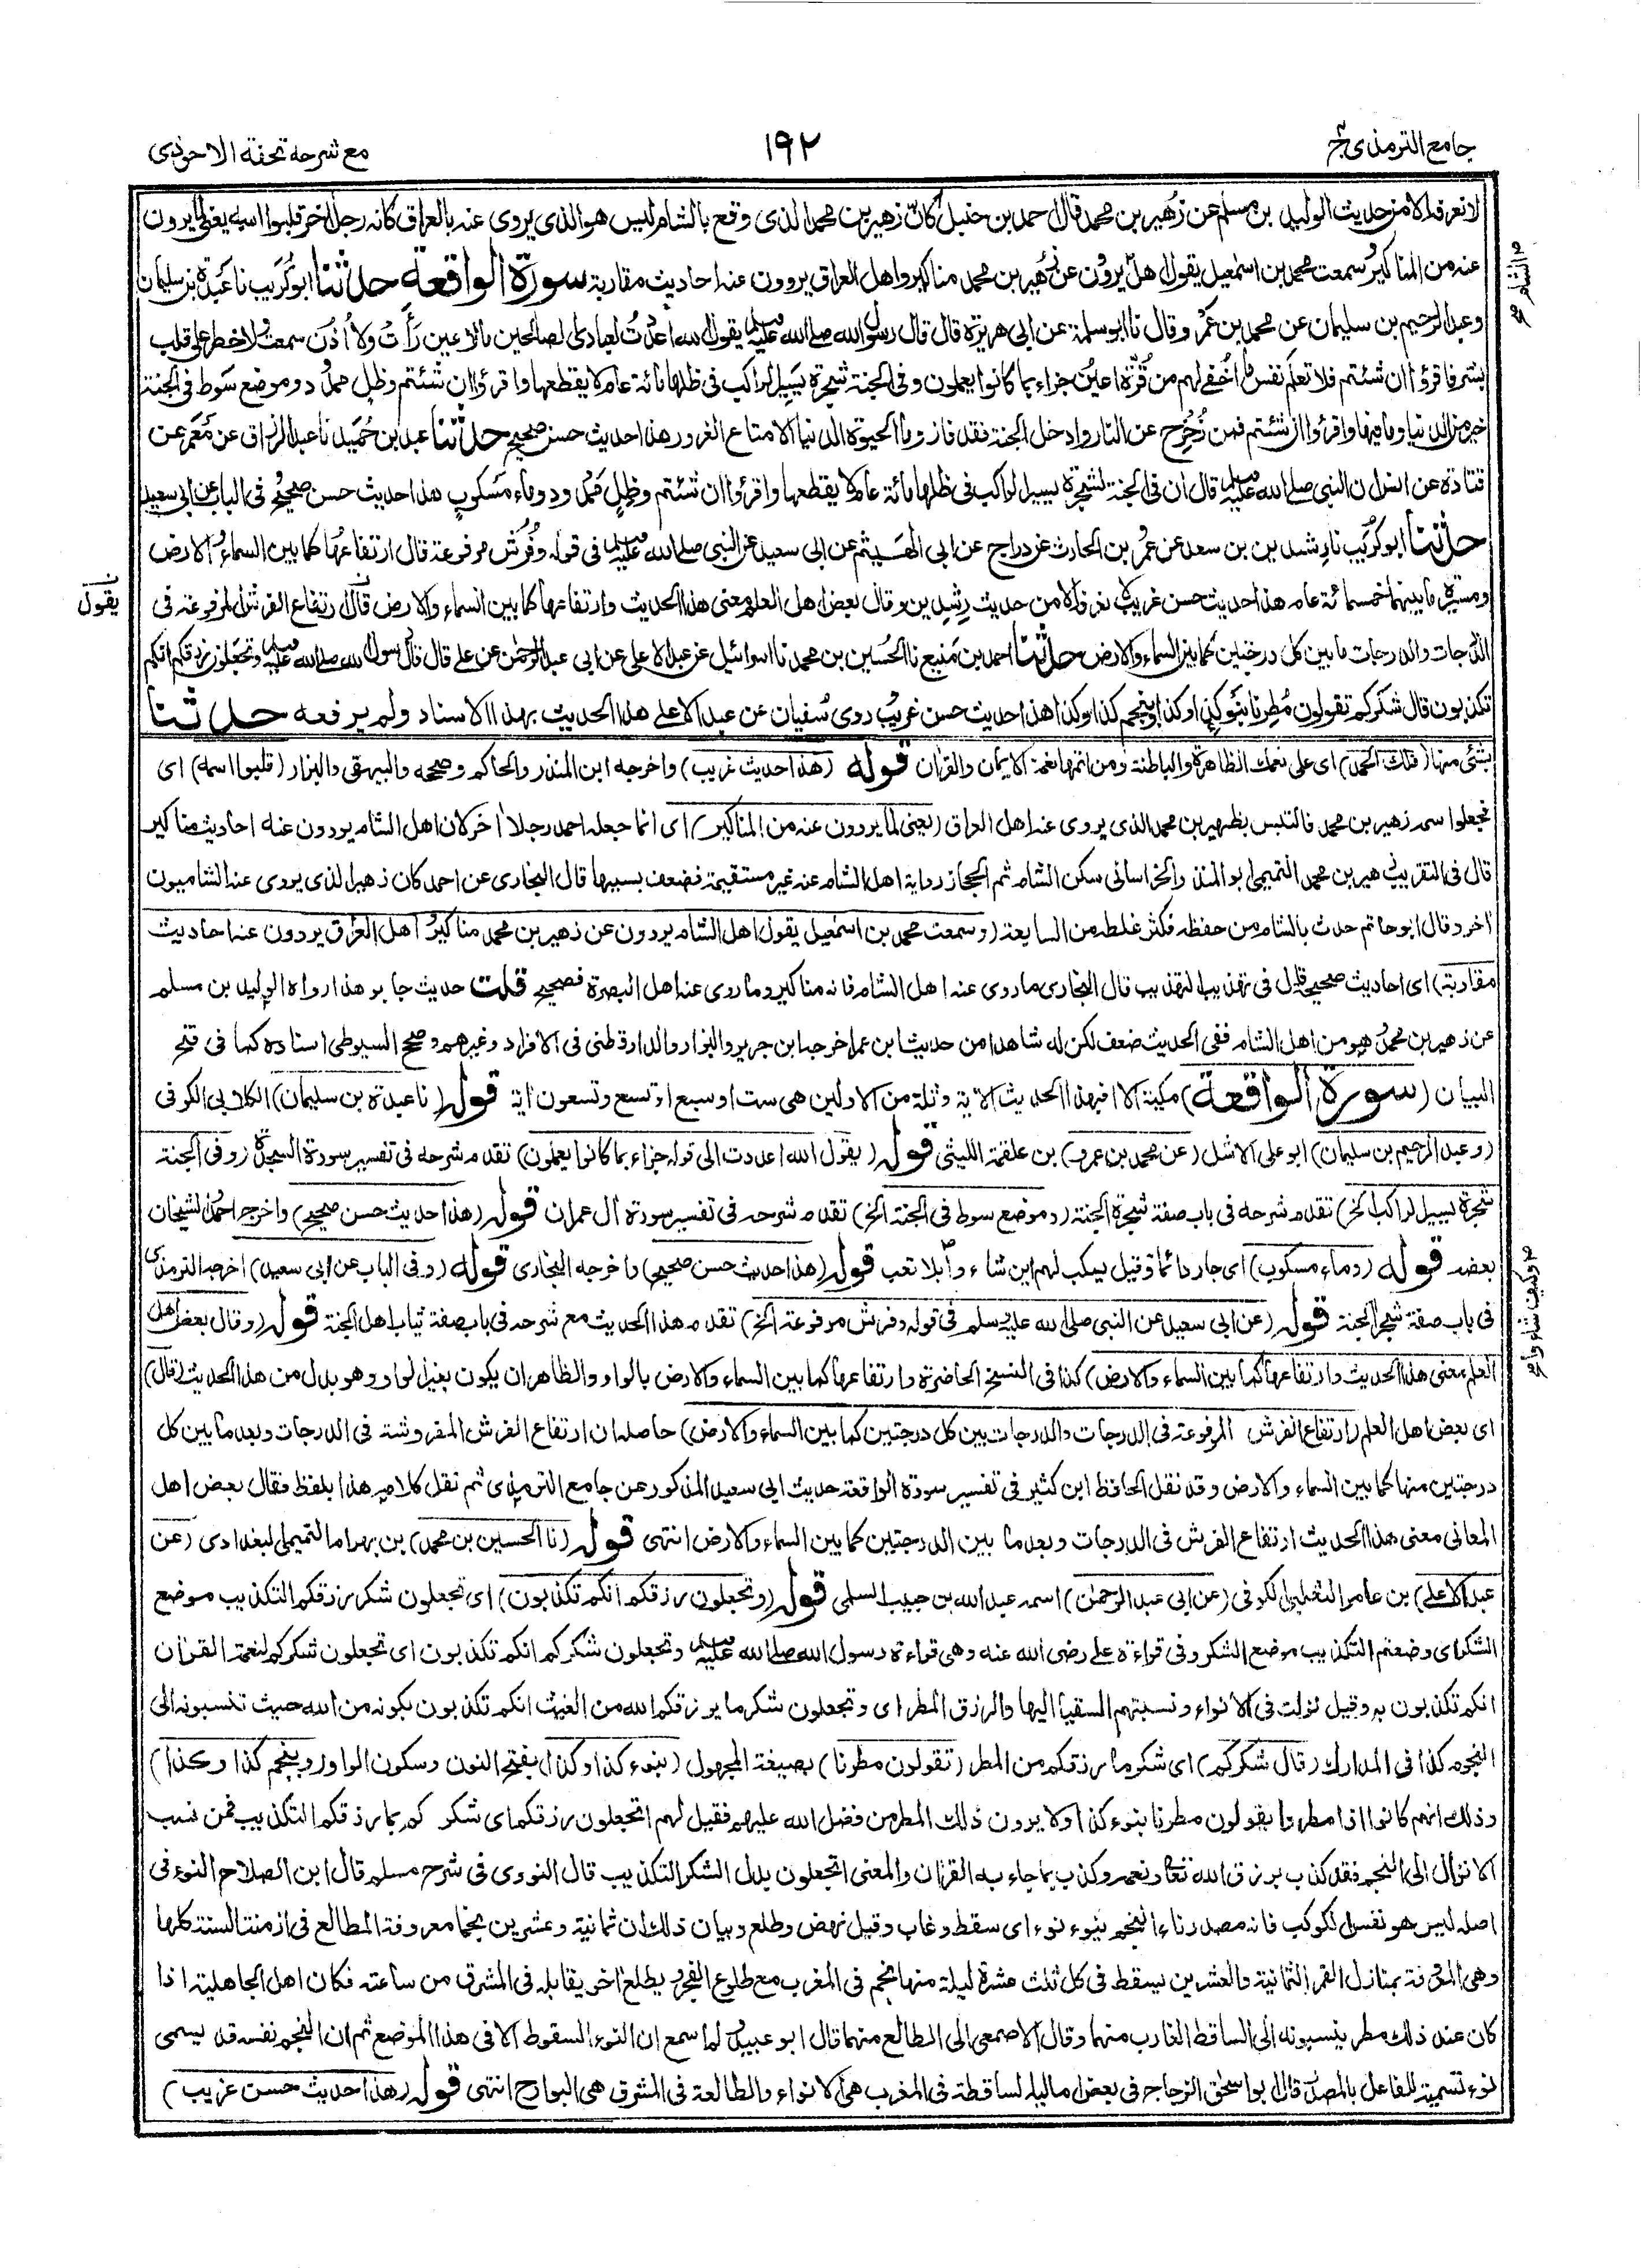 جامع الترمذي ج٤
١٩٢
مع شرحه تحفة الاحوذي
لا نعرفه الا من حديث الوليد بن مسلم عن زهير بن محمد قال احمد بن حنبل كان زهير بن محمد الذى وقع بالشام ليس هو الذى يروى عنه بالعراق كانه رجل اخر قلبوا اسمه يعنى لما يروون
عنه من المناكير سمعت محمد بن اسمعيل يقول اهل يروون عن زهير بن محمد مناكير واهل العراق يروون عنه احاديث مقاربة سورة الواقعة حدثنا ابو كريب نا عبدة بن سليمان
وعبد الرحيم بن سليمان عن محمد بن عمرو قال نا ابو سلمة عن ابى هريرة قال قال رسول الله صلى الله عليه وسلم يقول الله اعددت لعبادى الصالحين مالا عين رأت ولا اذن سمعت ولا خطر على قلب
بشر فاقرؤا ان شئتم فلا تعلم نفس ما اخفى لهم من قرة اعين جزاء بما كانوا يعملون وفى الجنة شجرة يسير الراكب فى ظلها مائة عام لا يقطعها واقرؤا ان شئتم وظل ممدود وموضع سوط فى الجنة
خير من الدنيا وما فيها واقرؤا ان شئتم فمن زحزح عن النار وادخل الجنة فقد فاز وما الحيوة الدنيا الا متاع الغرور هذا حديث حسن صحيح حدثنا عبد بن حميد نا عبد الرزاق عن معمر عن
قتادة عن انس ان النبى صلى الله عليه وسلم قال ان فى الجنة لشجرة يسير الراكب فى ظلها مائة عام لا يقطعها واقرؤا ان شئتم وظل ممدود وماء مسكوب هذا حديث حسن صحيح فى الباب عن ابى سعيد
حدثنا ابو كريب نا رشدين بن سعد عن عمرو بن الحارث عن دراج عن ابى الهيثم عن ابى سعيد عن النبى صلى الله عليه وسلم فى قوله وفرش مرفوعة قال ارتفاعها كما بين السماء والارض
ومسيرة ما بينهما خمسمائة عام هذا حديث حسن غريب لا نعرفه الا من حديث رشدين وقال بعض اهل العلم معنى هذا الحديث وارتفاعها كما بين السماء والارض قال ارتفاع الفرش المرفوعة فى
الدرجات والدرجات ما بين كل درجتين كما بين السماء والارض حدثنا احمد بن منيع نا الحسين بن محمد نا اسرائيل عن عبد الاعلى عن ابى عبد الرحمن عن على قال قال رسول الله صلى الله عليه وسلم وتجعلون رزقكم انكم
تكذبون قال شكركم تقولون مطرنا بنوء كذا وكذا وبنجم كذا وكذا هذا حديث حسن غريب روى سفيان عن عبد الاعلى هذا الحديث بهذا الاسناد ولم يرفعه حدثنا
بشئ منها (فلك الحمد) اى على نعمك الظاهرة والباطنة ومن اتمها نعمة الايمان والقران قوله (هذا حديث غريب) واخرجه ابن المنذر والحاكم وصححه والبيهقى والبزار (قلبوا اسمه) اى
فجعلوا اسمه زهير بن محمد فالتبس بظهير بن محمد الذى يروى عنه اهل العراق (يعنى لما يروون عنه من المناكير) اى انما جعله احمد رجلا اخر لان اهل الشام يروون عنه احاديث مناكير
قال فى التقريب زهير بن محمد التميمى ابو المنذر الخراسانى سكن الشام ثم الحجاز رواية اهل الشام عنه غير مستقيمة فضعف بسببها قال البخارى عن احمد كان زهيرا الذى يروى عنه الشاميون
اخر وقال ابو حاتم حدث بالشام من حفظه فكثر غلطه من السابعة (وسمعت محمد بن اسمعيل يقول اهل الشام يروون عن زهير بن محمد مناكير واهل العراق يروون عنه احاديث
مقاربة) اى احاديث صحيحة قال فى تهذيب التهذيب قال البخارى ما روى عنه اهل الشام فانه مناكير وما روى عنه اهل البصرة فصحيح قلت حديث جابر هذا رواه الوليد بن مسلم
عن زهير بن محمد وهو من اهل الشام ففى الحديث ضعف لكن له شاهدا من حديث ابن عمر اخرجه ابن جرير والبزار والدارقطنى فى الافراد وغيرهم وصحح السيوطى اسناده كما فى فتح
البيان (سورة الواقعة) مكية الا افبهذا الحديث الاية وثلة من الاولين هى ست او سبع او تسع وتسعون اية قوله (نا عبدة بن سليمان) الكلابى الكوفى
(وعبد الرحيم بن سليمان) ابو على الاشل (عن محمد بن عمرو) بن علقمة الليثى قوله (يقول الله اعددت الى قوله جزاء بما كانوا يعملون) تقدم شرحه فى تفسير سورة السجدة (وفى الجنة
شجرة يسير الراكب الخ) تقدم شرحه فى باب صفة شجرة الجنة (وموضع سوط فى الجنة الخ) تقدم شرحه فى تفسير سورة ال عمران قوله (هذا حديث حسن صحيح) واخرجه احمد والشيخان
بعضه قوله (وماء مسكوب) اى جار دائما وقيل يسكب لهم اين شاء وا بلا تعب قوله (هذا حديث حسن صحيح) واخرجه البخارى قوله (وفى الباب عن ابى سعيد) اخرجه الترمذى
فى باب صفة شجر الجنة قوله (عن ابى سعيد عن النبى صلى الله عليه وسلم فى قوله وفرش مرفوعة الخ) تقدم هذا الحديث مع شرحه فى باب صفة ثياب اهل الجنة قوله (وقال بعض اهل
العلم معنى هذا الحديث وارتفاعها كما بين السماء والارض) كذا فى النسخ الحاضرة وارتفاعها كما بين السماء والارض بالواو والظاهر ان يكون بغير الواو وهو بدل من هذا الحديث (قال)
اى بعض اهل العلم (ارتفاع الفرش المرفوعة فى الدرجات والدرجات بين كل درجتين كما بين السماء والارض) حاصله ان ارتفاع الفرش المفروشة فى الدرجات وبعد ما بين كل
درجتين منها كما بين السماء والارض وقد نقل الحافظ ابن كثير فى تفسير سورة الواقعة حديث ابى سعيد المذكور عن جامع الترمذى ثم نقل كلامه هذا بلفظ فقال بعض اهل
المعانى معنى هذا الحديث ارتفاع الفرش فى الدرجات وبعد ما بين الدرجتين كما بين السماء والارض انتهى قوله (نا الحسين بن محمد) بن بهرام التميمى البغدادى (عن
عبد الاعلى) بن عامر الثعلبى الكوفى (عن ابى عبد الرحمن) اسمه عبد الله بن حبيب السلمى قوله (وتجعلون رزقكم انكم تكذبون) اى تجعلون شكر رزقكم التكذيب موضع
الشكر اى وضعتم التكذيب موضع الشكر وفى قراءة على رضى الله عنه وهى قراءة رسول الله صلى الله عليه وسلم وتجعلون شكركم انكم تكذبون اى تجعلون شكركم لنعمة القران
انكم تكذبون به وقيل نزلت فى الانواء ونسبتهم السقيا اليها والرزق المطر اى وتجعلون شكر ما يرزقكم الله من الغيث انكم تكذبون بكونه من الله حيث تنسبونه الى
النجوم كذا فى المدارك (قال شكركم) اى شكر ما رزقكم من المطر (تقولون مطرنا) بصيغة المجهول (بنوء كذا وكذا) بفتح النون وسكون الواو (وبنجم كذا وكذا)
وذلك انهم كانوا اذا مطروا يقولون مطرنا بنوء كذا ولا يرون ذلك المطر من فضل الله عليهم فقيل لهم اتجعلون رزقكم اى شكركم بما رزقكم التكذيب فمن نسب
الانزال الى النجم فقد كذب برزق الله تعالى ونعمه وكذب بما جاء به القران والمعنى اتجعلون بدل الشكر التكذيب قال النووى فى شرح مسلم قال ابن الصلاح النوء فى
اصله ليس هو نفس الكوكب فانه مصدر ناء النجم ينوء نوء اى سقط وغاب وقيل نهض وطلع وبيان ذلك ان ثمانية وعشرين نجما معروفة المطالع فى ازمنة السنة كلها
وهى المعروفة بمنازل القمر الثمانية والعشرين يسقط فى كل ثلث عشرة ليلة منها نجم فى المغرب مع طلوع الفجر ويطلع اخر يقابله فى المشرق من ساعته فكان اهل الجاهلية اذا
كان عند ذلك مطر ينسبونه الى الساقط الغارب منهما وقال الاصمعى الى الطالع منهما قال ابو عبيد ولم اسمع ان النوء السقوط الا فى هذا الموضع ثم ان النجم نفسه قد يسمى
نوء تسمية للفاعل بالمصدر قال ابو اسحق الزجاج فى بعض اماليه الساقطة فى المغرب هى الانواء والطالعة فى المشرق هى البوارح انتهى قوله (هذا حديث حسن غريب)
الشام
يقول